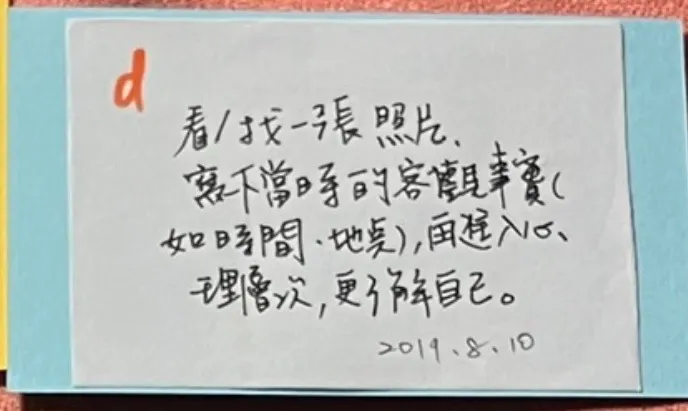 d
看/找一張照片、
寫下當時的客觀事實(
如時間、地點),再進入心、
理層次,更了解自己。
2019.8.10